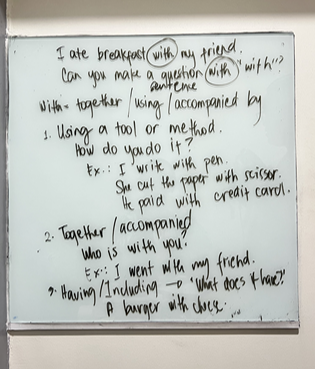 I ate breakfast with my friend.
Can you make a question with "with"?
sentence
With = together / using / accompanied by
1. Using a tool or method.
How do you do it?
Ex.: I write with pen.
She cut the paper with scissor.
He paid with credit card.
2. Together / accompanied
Who is with you?
Ex: I went with my friend.
3. Having / Including → "What does it have?"
A burger with